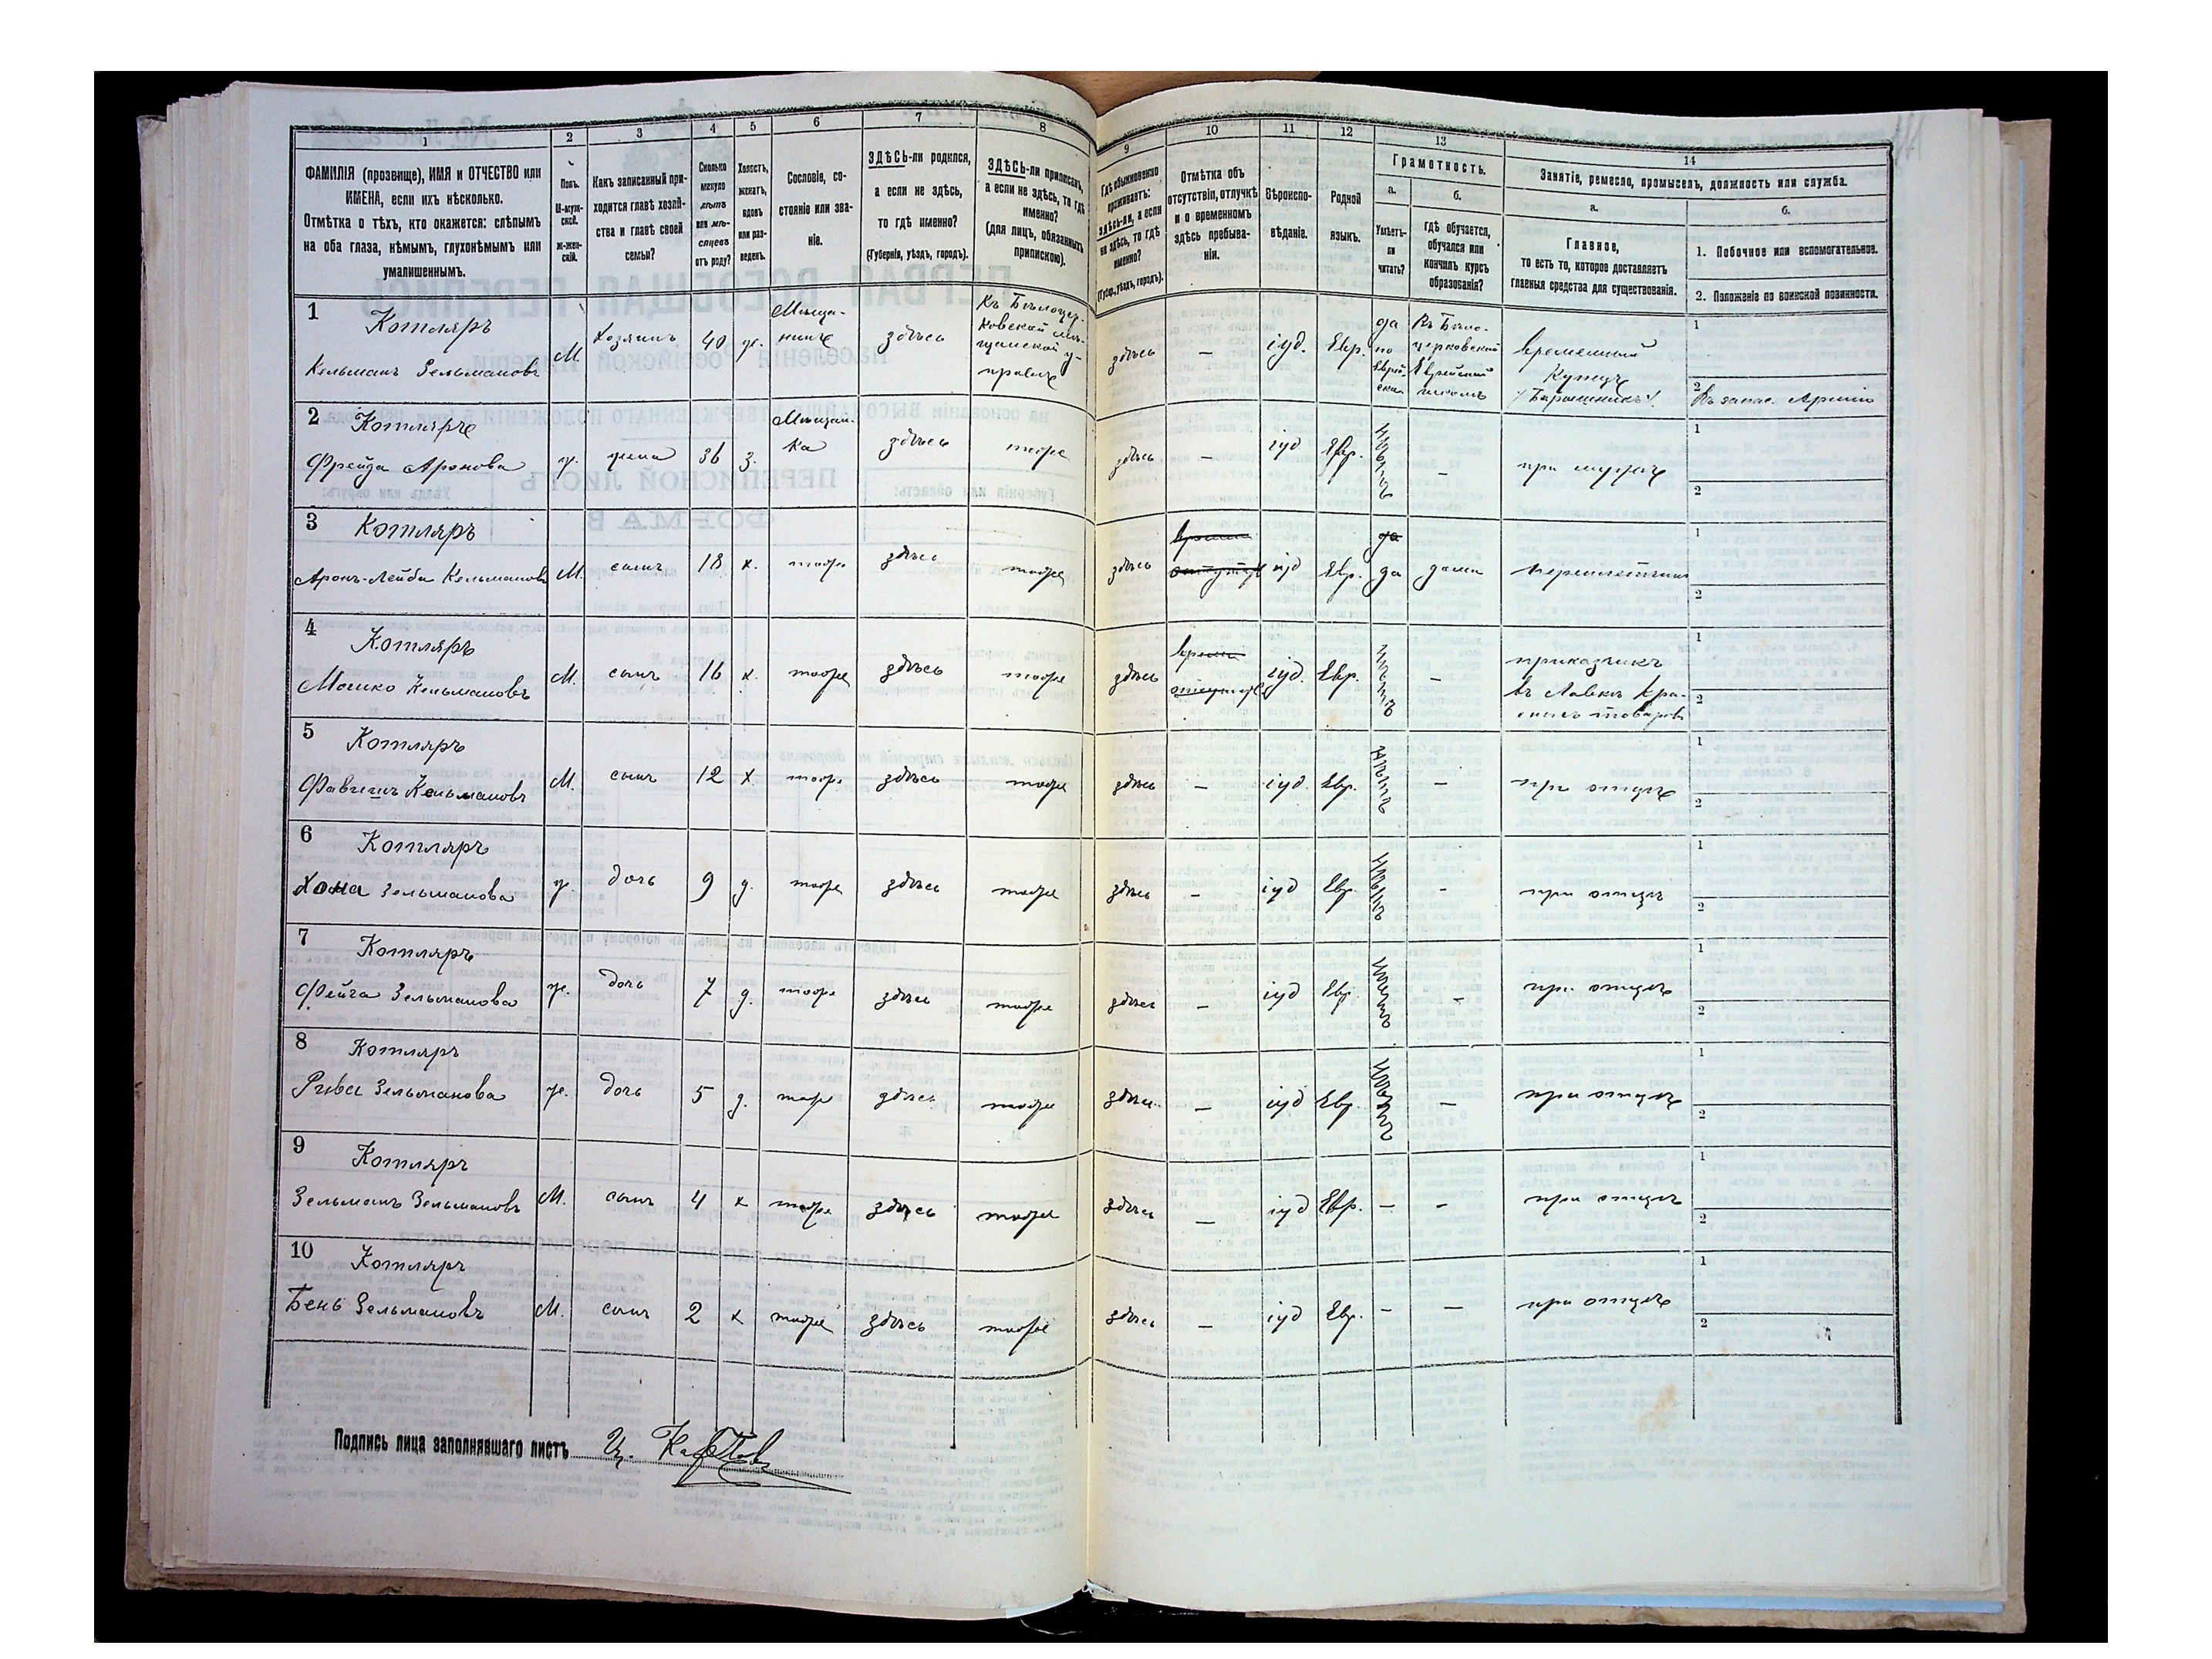 1
2
3
4
5
6
7
8
ФАМИЛІЯ (прозвище), ИМЯ и ОТЧЕСТВО или
ИМЕНА, если ихъ нѣсколько.
Отмѣтка о тѣхъ, кто окажется: слѣпымъ
на оба глаза, нѣмымъ, глухонѣмымъ или
умалишеннымъ.
Полъ.
М-муж-
ской.
Ж-жен-
скій.
Какъ записанный при-
ходится главѣ хозяй-
ства и главѣ своей
семьи?
Сколько
минуло
лѣтъ
или мѣ-
сяцевъ
отъ роду?
Холостъ,
женатъ,
вдовъ
или раз-
веденъ.
Сословіе, со-
стояніе или зва-
ніе.
ЗДѢСЬ-ли родился,
а если не здѣсь,
то гдѣ именно?
(Губернія, уѣздъ, городъ).
ЗДѢСЬ-ли приписанъ,
а если не здѣсь, то гдѣ
именно?
(для лицъ, обязанныхъ
припискою).
9
10
11
12
13
14
Гдѣ обыкновенно
проживаетъ:
здѣсь-ли, а если
не здѣсь, то гдѣ
именно?
(Губер., уѣздъ, городъ).
Отмѣтка объ
отсутствіи, отлучкѣ
и о временномъ
здѣсь пребыва-
ніи.
Вѣроиспо-
вѣданіе.
Родной
языкъ.
Грамотность.
а.
Умѣетъ-
ли
читать?
б.
гдѣ обучается,
обучался или
кончилъ курсъ
образованія?
Занятіе, ремесло, промыселъ, должность или служба.
а.
Главное,
то есть то, которое доставляетъ
главныя средства для существованія.
б.
1. Побочное или вспомогательное.
2. Положеніе по воинской повинности.
1 Котляръ
Кельманъ Зельмановъ М. Хозяинъ 40 ж. Мѣща-
нинъ здѣсь Къ Бѣлоцер-
ковской мѣ-
щанской у-
правѣ
здѣсь – іуд. Евр. да
по
Еврей-
ски Въ Бѣло-
церковской
Еврейской
школѣ временный
Купецъ
"Барышникъ". 1
2 Въ запас. Арміи
2 Котляръ
Фрейда Аронова ж. жена 36 з. Мѣщан-
ка здѣсь тоже здѣсь – іуд Евр. – при мужѣ 1
2
3 Котляръ
Аронъ-Лейба Кельмановъ М. сынъ 18 х. тоже здѣсь тоже здѣсь іуд Евр. да да дома переплетчикъ 1
2
4 Котляръ
Мошко Кельмановъ М. сынъ 16 х. тоже здѣсь тоже здѣсь іуд. Евр. – приказчикъ
въ Лавкѣ Кра-
сныхъ товаровъ 1
2
5 Котляръ
Кельмановъ М. сынъ 12 х тоже здѣсь тоже здѣсь – іуд. Евр. – при отцѣ 1
2
6 Котляръ
Хона Зельманова ж. дочь 9 д. тоже здѣсь тоже здѣсь – іуд Евр. – при отцѣ 1
2
7 Котляръ
Фейга Зельманова ж. дочь 7 д. тоже здѣсь тоже здѣсь – іуд Евр. – при отцѣ 1
2
8 Котляръ
Рива Зельманова ж. дочь 5 д. тоже здѣсь тоже здѣсь – іуд Евр. – при отцѣ 1
2
9 Котляръ
Зельманъ Зельмановъ М. сынъ 4 х тоже здѣсь тоже здѣсь – іуд Евр. – – при отцѣ 1
2
10 Котляръ
Бень Зельмановъ М. сынъ 2 х тоже здѣсь тоже здѣсь – іуд Евр. – – при отцѣ 1
2
Подпись лица заполнявшаго листъ